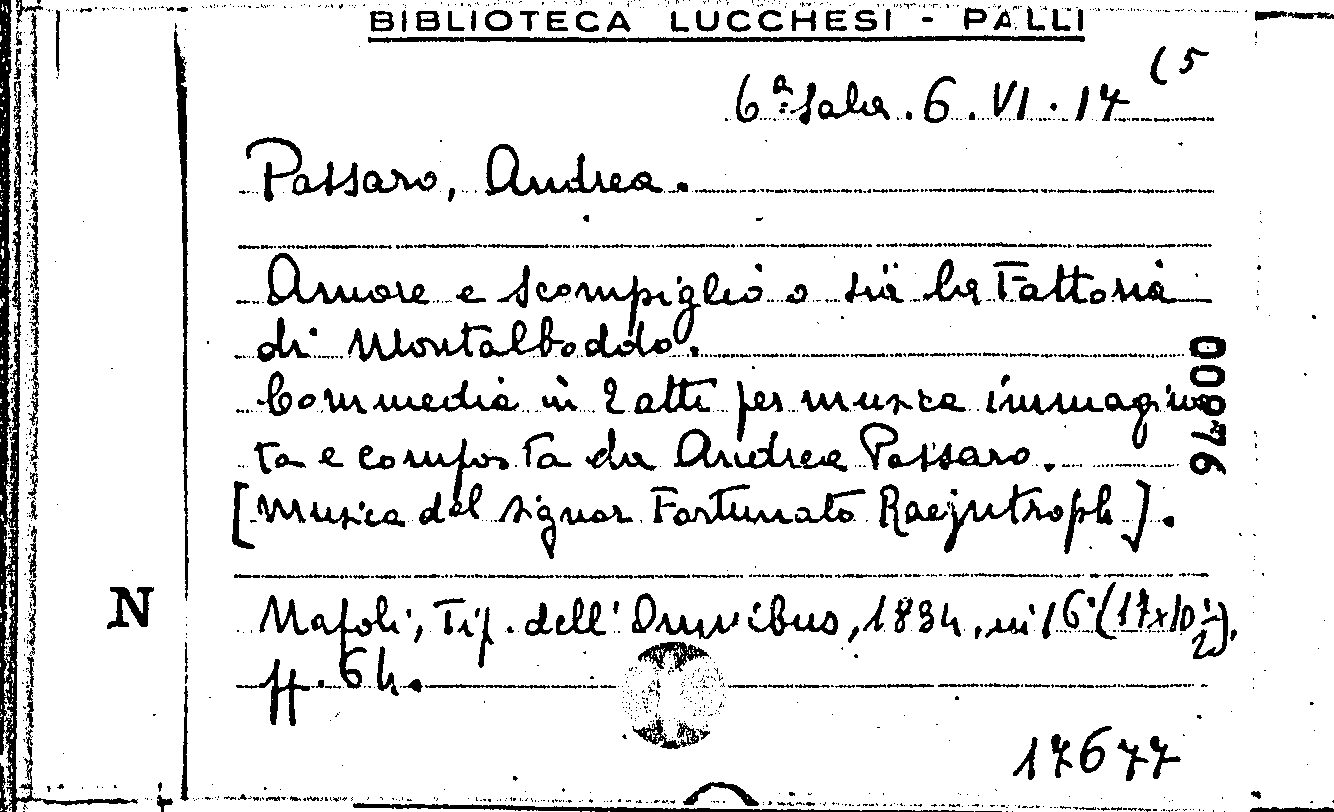 BIBLIOTECA LUCCHESI - PALLI
6ª Sala. 6. VI. 17 (5
Passaro, Andrea.
Amore e scompiglio o sia la Fattoria
di Montalboddo.
Commedia in 2 atti per musica immagina
ta e composta da Andrea Passaro.
[Musica del signor Fortunato Raejntroph].
Napoli, Tip. dell'Omnibus, 1834, in 16° (17x10 ½),
pp. 64.
N
00076
17677